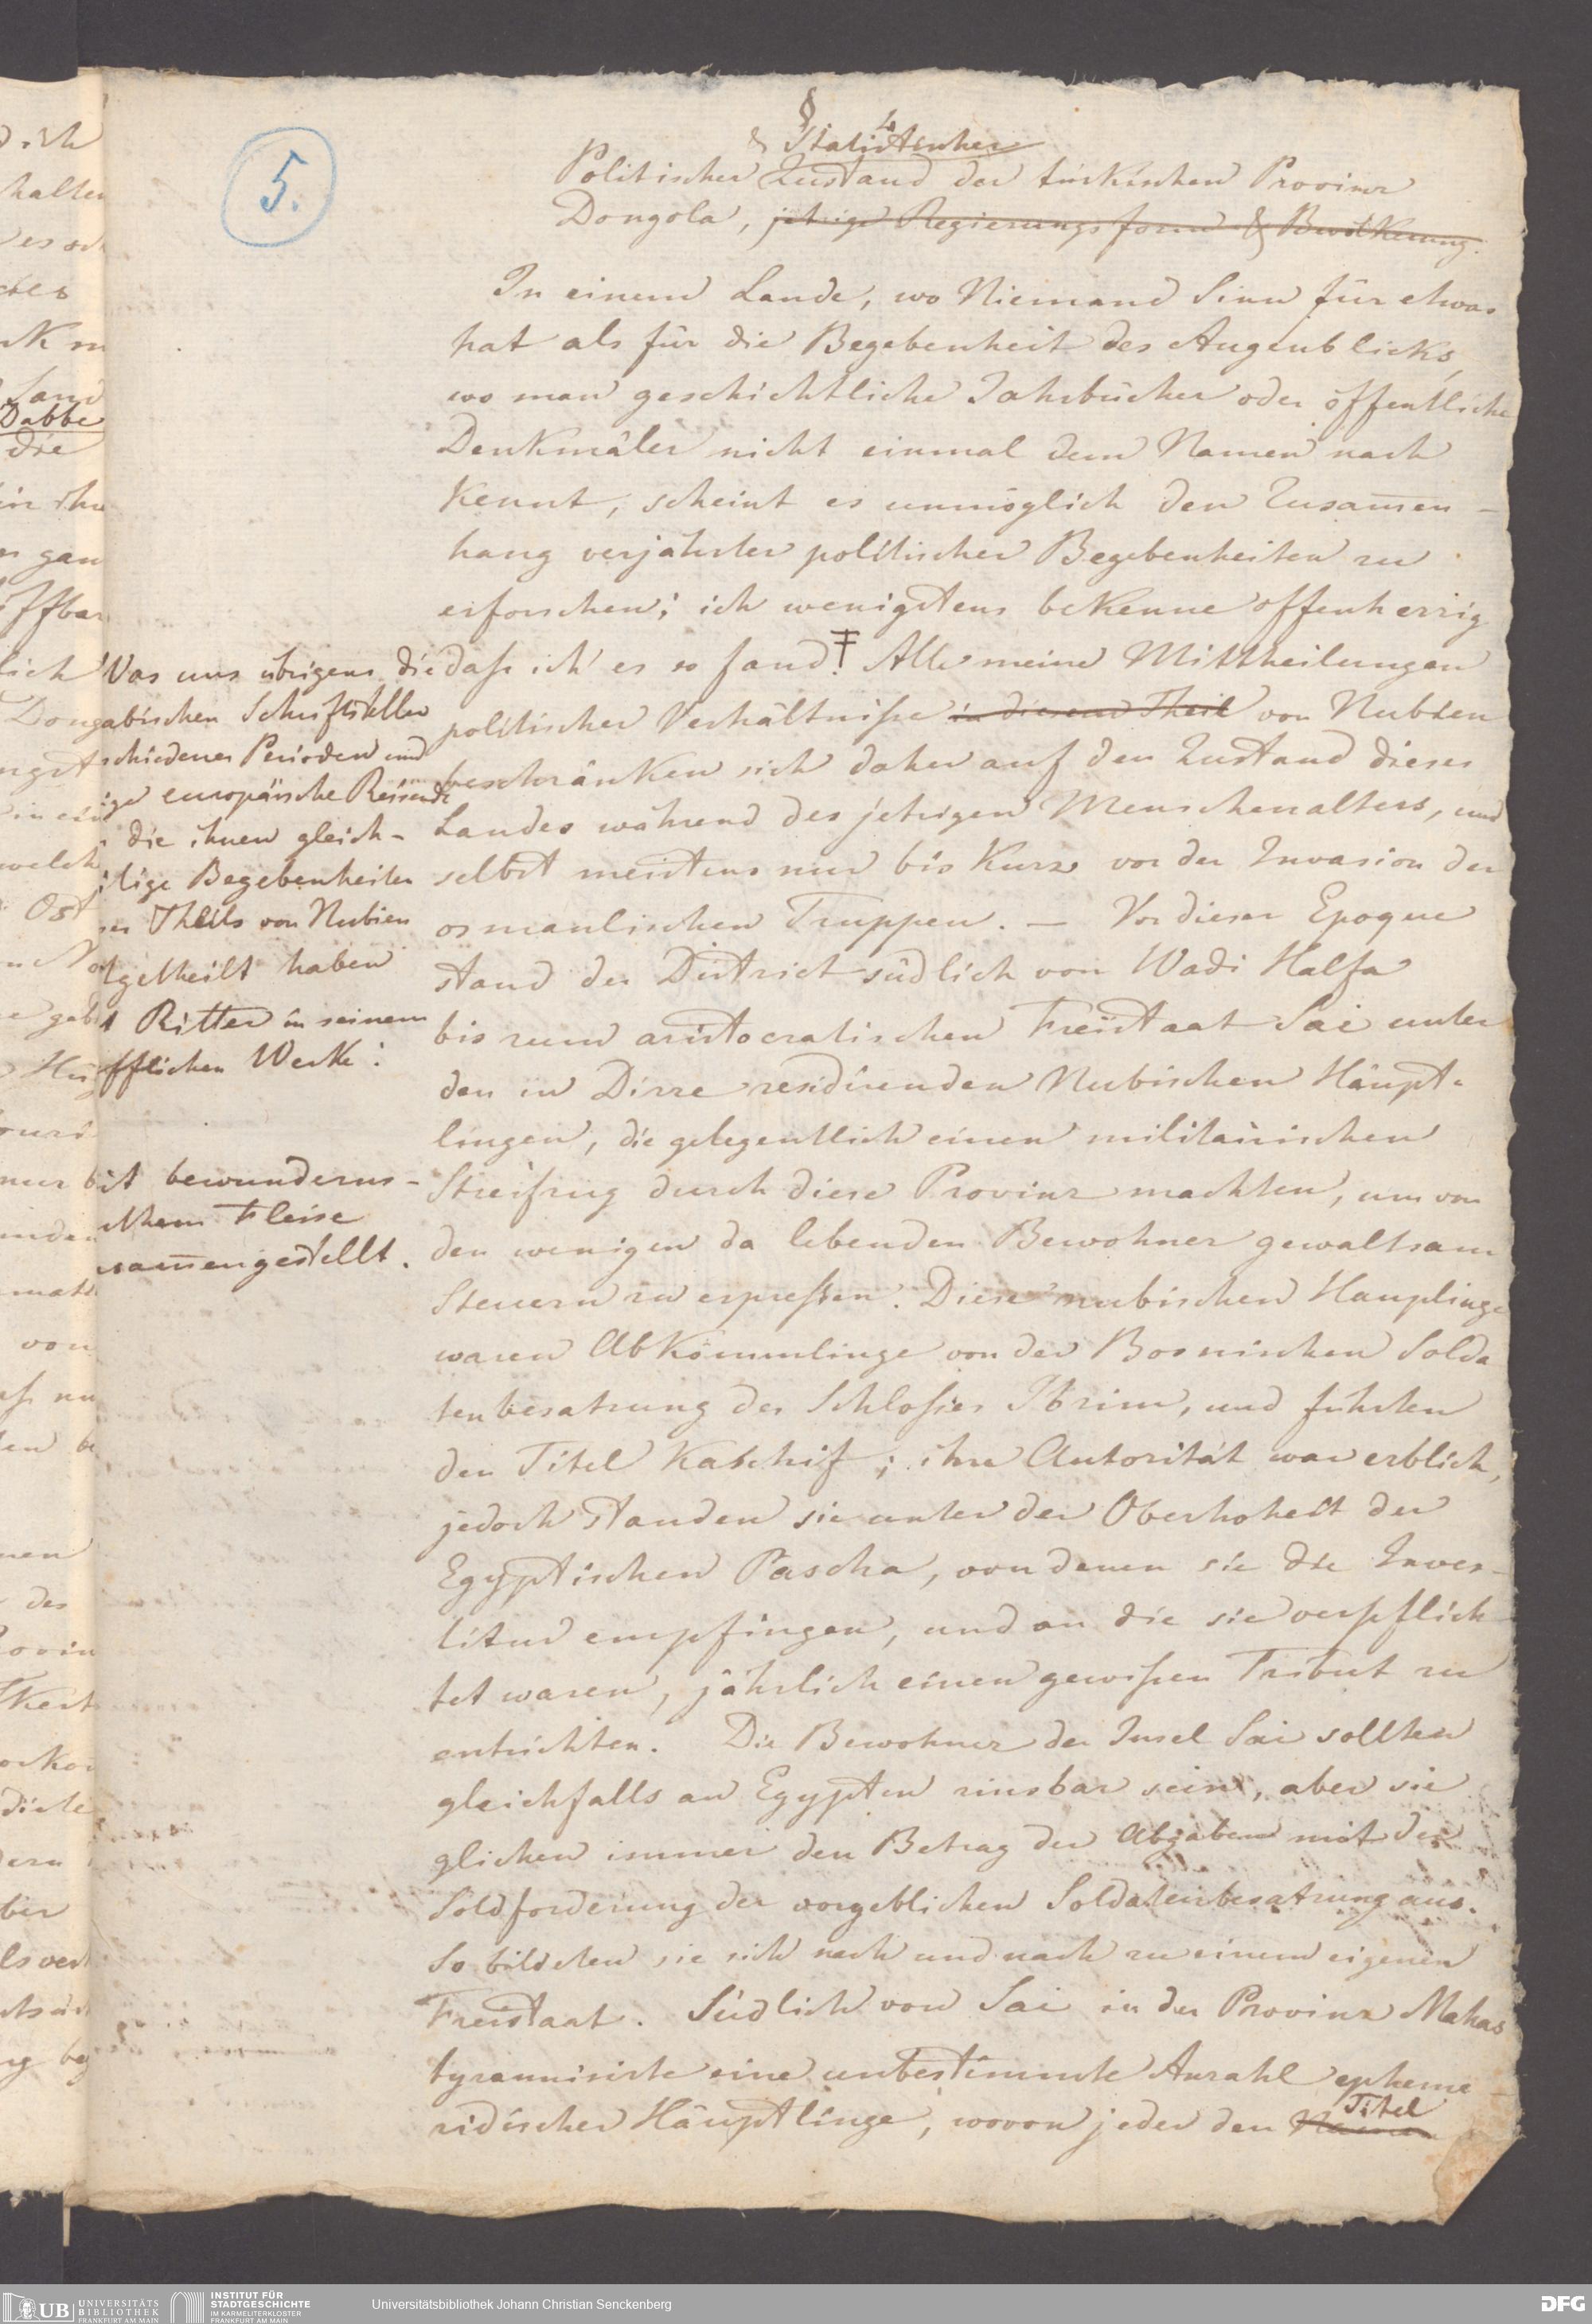 5.
§ 4
& Statistischer
Politischer Zustand der türkischen Provinz
Dongola, jetzige Regierungsform & Bevölkerung.
In einem Lande, wo Niemand Sinn für etwas
hat als für die Begebenheit des Augenblicks,
wo man geschichtliche Jahrbücher oder öffentliche
Denkmäler nicht einmal dem Namen nach
kennt, scheint es unmöglich den Zusam̅en-
hang verjährter politischer Begebenheiten zu
erforschen; ich wenigstens bekenne offenherzig
daſs ich es so fand! ‡ Alle meine Mittheilungen
politischer Verhältniſse in diesem Theil von Nubien
beschränken sich daher auf den Zustand dieses
Landes während des jetzigen Menschenalters, und
selbst meistens nur bis kurz vor der Invasion der
osmanlischen Truppen. — Vor dieser Epoque
stand der District südlich von Wadi Halfa
bis zum aristocratischen Freistaat Sai unter
den in Dirre residirenden Nubischen Häupt-
lingen, die gelegentlich einen militairischen
Streifzug durch diese Provinz machten, um von
den wenigen da lebenden Bewohner gewaltsam
Steuern zu erpreſsen. Diese nubischen Hauplinge
waren Abkömmlinge von der Bosnischen Solda
tenbesatzung des Schloſses Ibrim, und führten
den Titel Kaschif; ihre Autorität war erblich,
jedoch standen sie unter der Oberhoheit der
Egyptischen Pascha, von denen sie die Inves-
titur empfingen, und an die sie verpflich-
tet waren, jährlich einen gewiſsen Tribut zu
entrichten. Die Bewohner der Insel Sai sollten
gleichfalls an Egypten zinsbar sein, aber sie
glichen immer den Betrag der Abgaben mit der
Soldforderung der vorgeblichen Soldatenbesatzung aus.
So bildeten sie sich nach und nach zu einem eigenen
Freistaat. Südlich von Sai in der Provinz Mahas
tyrannisirte eine unbestimmte Anzahl epheme-
ridischer Häuptlinge, wovon jeder den Namen Titel
Was uns übrigens die
abischen Schriftsteller
schiedener Perioden und
ige europäische Reisende
die ihnen gleich-
itige Begebenheiten
ses Theils von Nubien
tgetheilt haben
Ritter in seinem
fflichen Werke
it bewunderns-
rthem Fleise
usam̅engestellt.
halten
Dabbe
die
gan
ffbar
lich
Dong
welch
Ost
geb
nur
von
des
ber
UB UNIVERSITÄTS
BIBLIOTHEK
FRANKFURT AM MAIN
INSTITUT FÜR
STADTGESCHICHTE
IM KARMELITERKLOSTER
FRANKFURT AM MAIN
Universitätsbibliothek Johann Christian Senckenberg
DFG